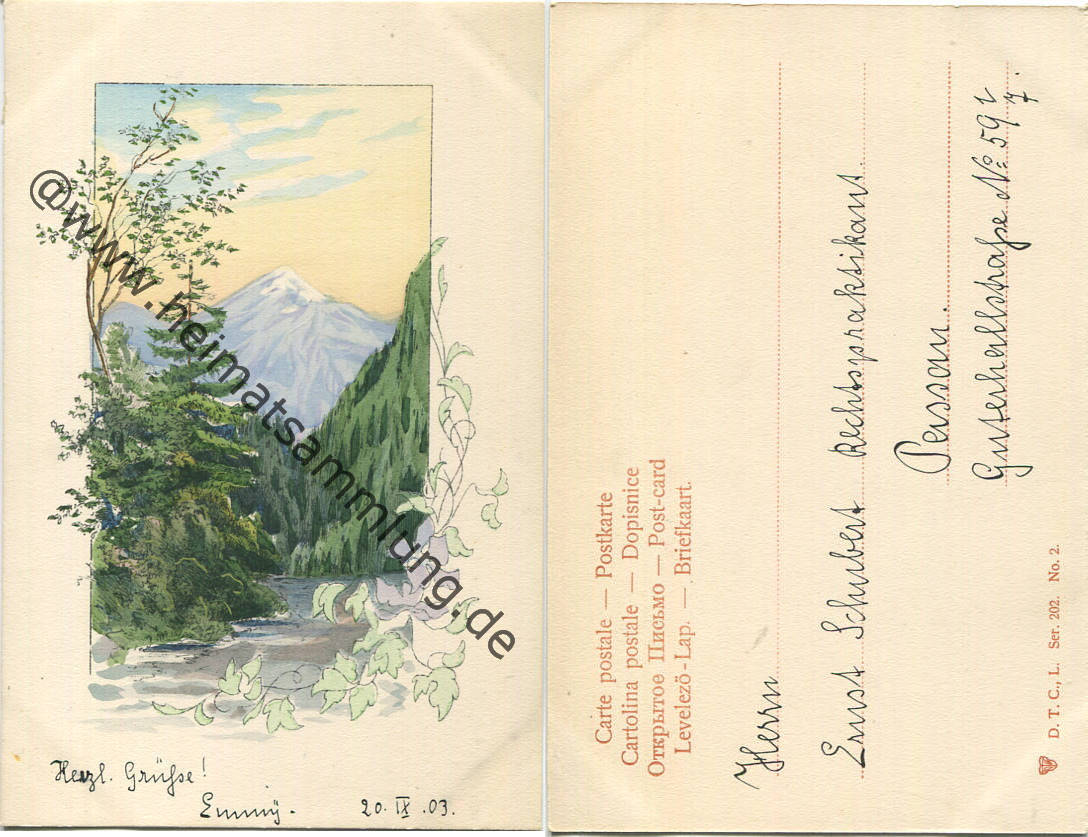 @www.heimatsammlung.de
Herzl. Grüße!
Emmy.
20. IX. 03.
Carte postale — Postkarte
Cartolina postale — Dopisnice
Открытое Письмо — Post-card
Levelező-Lap. — Briefkaart.
Herrn
Ernst Schubert Rechtspraktikant.
Passau.
N: 59
D. T. C., L. Ser. 202. No. 2.